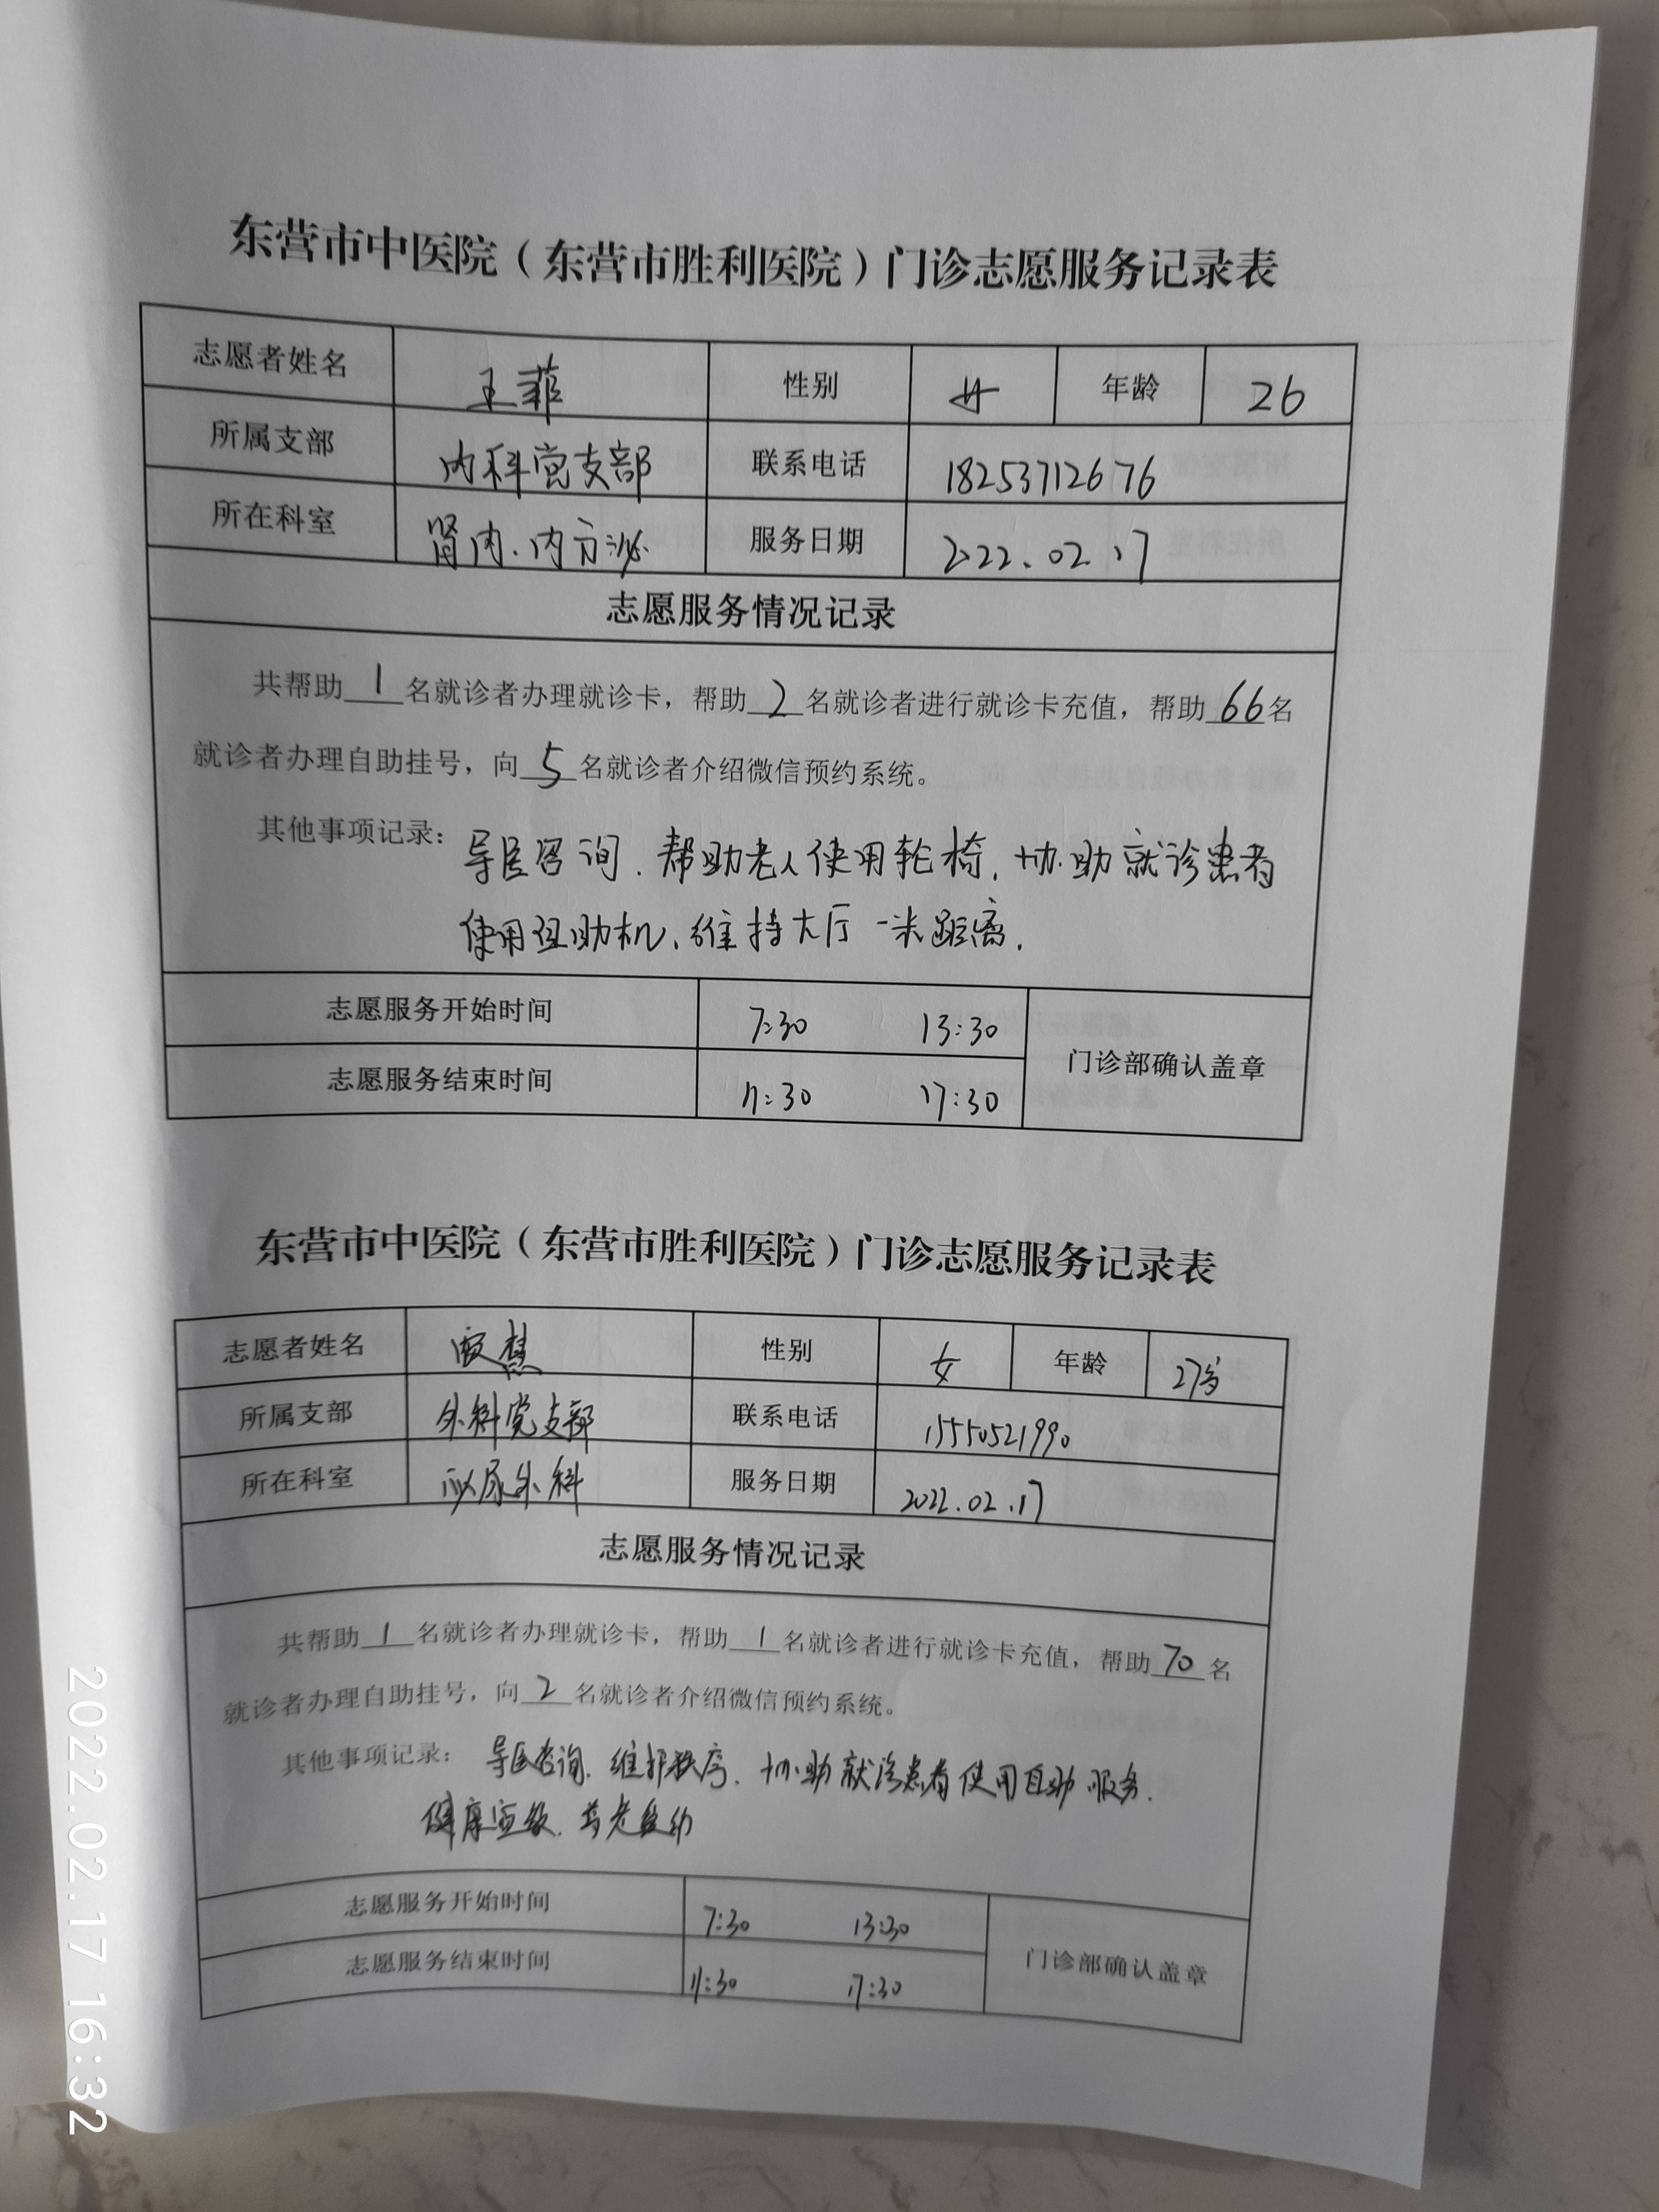 东营市中医院（东营市胜利医院）门诊志愿服务记录表
志愿者姓名 王菲 性别 女 年龄 26
所属支部 内科党支部 联系电话 18253712676
所在科室 肾内、内分泌 服务日期 2022.02.17
志愿服务情况记录
共帮助 1 名就诊者办理就诊卡，帮助 2 名就诊者进行就诊卡充值，帮助 66 名
就诊者办理自助挂号，向 5 名就诊者介绍微信预约系统。
其他事项记录：导医咨询、帮助老人使用轮椅、协助就诊患者
使用自助机、维持大厅一米距离.
志愿服务开始时间 7:30 13:30
志愿服务结束时间 11:30 17:30
门诊部确认盖章
东营市中医院（东营市胜利医院）门诊志愿服务记录表
志愿者姓名 性别 女 年龄 27岁
所属支部 外科党支部 联系电话 15550521990
所在科室 泌尿外科 服务日期 2022.02.17
志愿服务情况记录
共帮助 1 名就诊者办理就诊卡，帮助 1 名就诊者进行就诊卡充值，帮助 70 名
就诊者办理自助挂号，向 2 名就诊者介绍微信预约系统。
其他事项记录： 导医咨询、维护秩序、协助就诊患者使用自助服务、
健康宣教、尊老爱幼
志愿服务开始时间 7:30 13:30
志愿服务结束时间 11:30 17:30
门诊部确认盖章
2022.02.17 16:32